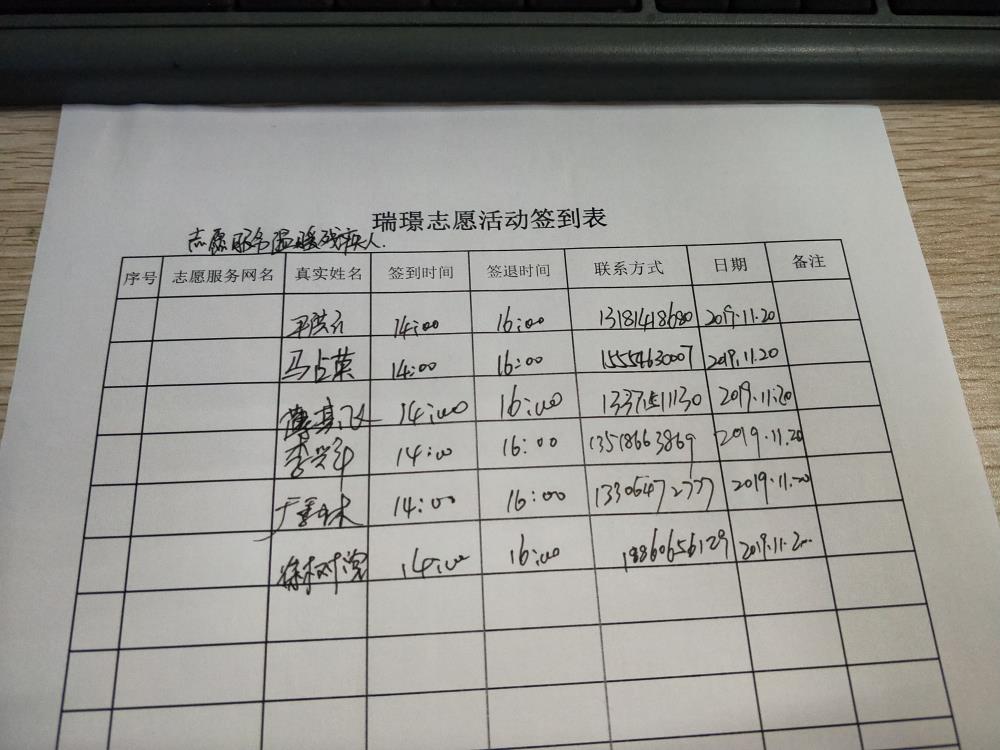 瑞璟志愿活动签到表
志愿服务温暖残疾人.
序号 志愿服务网名 真实姓名 签到时间 签退时间 联系方式 日期 备注
14:00 16:00 13181418680 2019.11.20
马占荣 14:00 16:00 15554630007 2019.11.20
14:00 16:00 2019.11.20
李兴军 14:00 16:00 13518663869 2019.11.20
14:00 16:00 13305472777 2019.11.20
徐树党 14:00 16:00 18860656129 2019.11.20